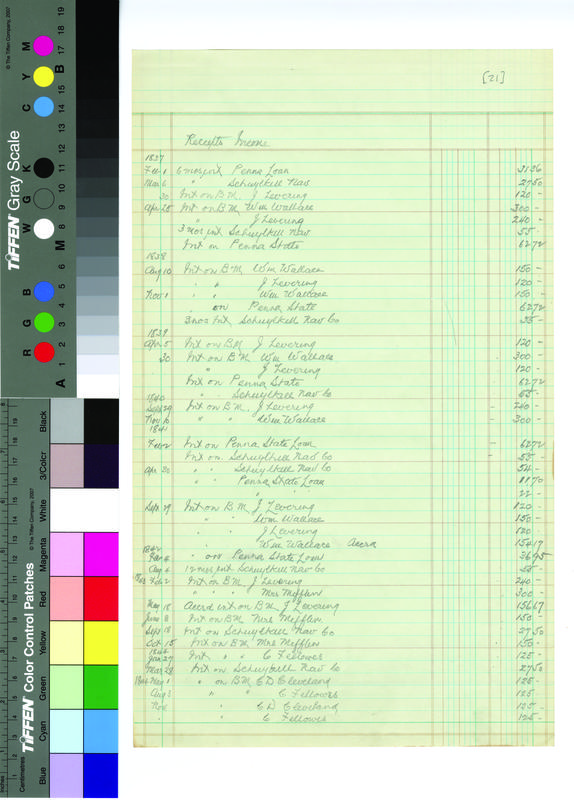 © The Tiffen Company, 2007
TIFFEN Gray Scale
R G B W G K C Y M
A 1 2 3 4 5 6 M 8 9 10 11 12 13 14 15 B 17 18 19
© The Tiffen Company, 2007
TIFFEN Color Control Patches
Centimetres
Inches
Blue Cyan Green Yellow Red Magenta White 3/Color Black
[21]
Receipts Income
1837
Feb 1 6 mos int Penna Loan 31 36
Mar 6 " Schuylkill Nav 27 50
30 Int on B M, J Levering 120 -
Apr 28 Int on B M, Wm Wallace 300 -
" J Levering 240 -
3 mos int Schuylkill Nav 55 -
Int on Penna State 62 72
1838
Aug 10 Int on B M, Wm Wallace 150 -
" " J Levering 120 -
Nov 1 " " Wm Wallace 150 -
" on Penna State 62 72
3 mos Int Schuylkill Nav Co 55 -
1839
Apr 5 Int on B M J Levering 120 -
30 Int on B M Wm Wallace 300 -
" J Levering 120 -
Int on Penna State 62 72
" Schuylkill Nav Co 55 -
1840
Sept 29 Int on B M, J Levering 240 -
Nov 10 " " Wm Wallace 300 -
1841
Feb 2 Int on Penna State Loan 62 72
Int on Schuylkill Nav Co 55 -
Apr 30 " " Schuylkill Nav Co 54 -
" " Penna State Loan 11 70
" 22 -
Sept 29 Int on B M, J Levering 120 -
" " Wm Wallace 150 -
" J Levering 120 -
Wm Wallace Accrd 154 17
1842
Feb 4 " on Penna State Loan 36 95
Aug 4 12 mos int Schuylkill Nav Co 55 -
Feb 2 Int on B M, J Levering 240 -
" " " Mrs Mifflin 300 -
May 18 Accrd int on B M, J Levering 156 67
June 8 Int on B M Mrs Mifflin 150 -
Sept 18 Int on Schuylkill Nav Co 27 50
Oct 15 Int on B M Mrs Mifflin 150 -
1844
Jan 27 Int " " C Fellows 125 -
Mar 28 Int on Schuylkill Nav Co 27 50
1844 May 1 " on B M C D Cleveland 125 -
Aug 3 " " C Fellows 125 -
Nov " C D Cleveland 125 -
" " C Fellows 125 -